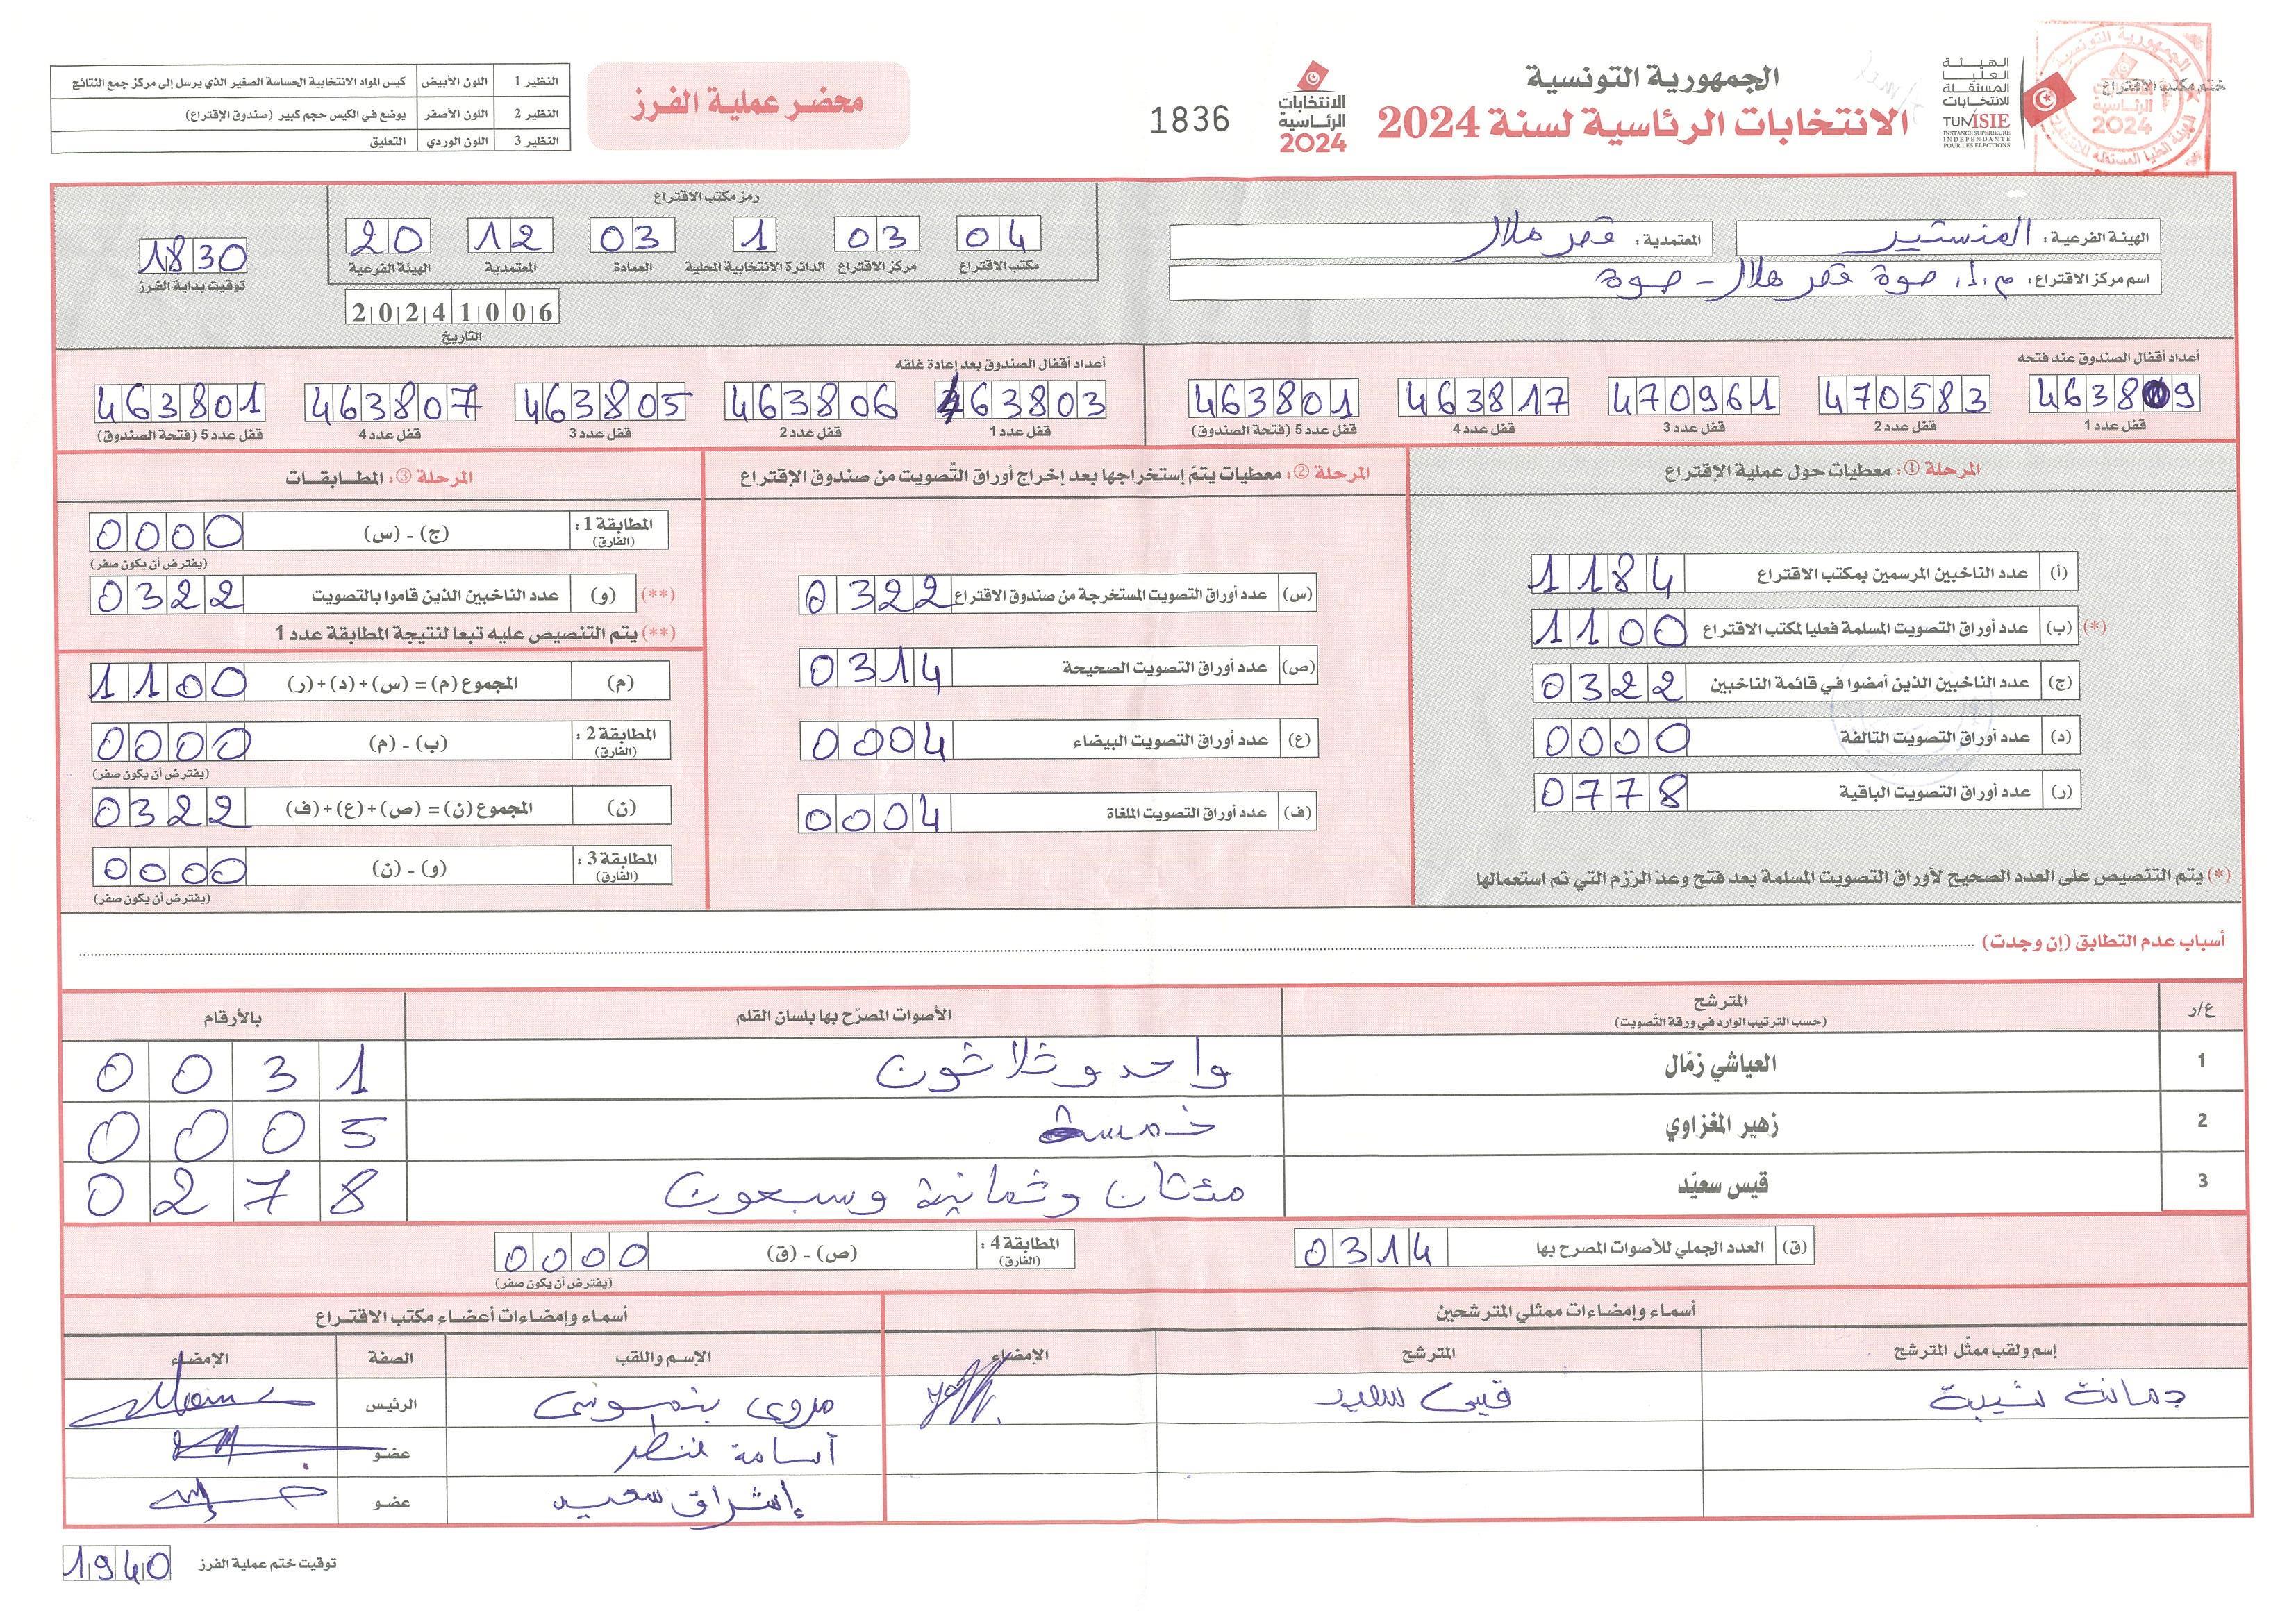 ختم مكتب الاقتراع
الهيئة
العليا
المستقلة
للانتخابات
TUNISIE
INSTANCE SUPERIEURE
INDEPENDANTE
POUR LES ELECTIONS
الجمهورية التونسية
الانتخابات الرئاسية لسنة 2024
الانتخابات
الرئاسية
2024
1836
محضر عملية الفرز
النظير 1 اللون الأبيض كيس المواد الانتخابية الحساسة الصغير الذي يرسل إلى مركز جمع النتائج
النظير 2 اللون الأصفر يوضع في الكيس حجم كبير (صندوق الإقتراع)
النظير 3 اللون الوردي التعليق
الهيئة الفرعية: المنستير
المعتمدية: قصر هلال
اسم مركز الاقتراع: م.إ. صوة قصر هلال - صوة
رمز مكتب الاقتراع
04 03 1 03 12 20
مكتب الاقتراع مركز الاقتراع الدائرة الانتخابية المحلية العمادة المعتمدية الهيئة الفرعية
20241006
التاريخ
1830
توقيت بداية الفرز
أعداد أقفال الصندوق عند فتحه
463809 470583 470961 463817 463801
قفل عدد 1 قفل عدد 2 قفل عدد 3 قفل عدد 4 قفل عدد 5 (فتحة الصندوق)
أعداد أقفال الصندوق بعد إعادة غلقه
463803 463806 463805 463807 463801
قفل عدد 1 قفل عدد 2 قفل عدد 3 قفل عدد 4 قفل عدد 5 (فتحة الصندوق)
المرحلة ①: معطيات حول عملية الإقتراع
(أ) عدد الناخبين المرسمين بمكتب الاقتراع 1184
(*) (ب) عدد أوراق التصويت المسلمة فعليا لمكتب الاقتراع 1100
(ج) عدد الناخبين الذين أمضوا في قائمة الناخبين 0322
(د) عدد أوراق التصويت التالفة 0000
(ر) عدد أوراق التصويت الباقية 0778
(*) يتم التنصيص على العدد الصحيح لأوراق التصويت المسلمة بعد فتح وعدّ الرّزم التي تم استعمالها
المرحلة ②: معطيات يتمّ إستخراجها بعد إخراج أوراق التّصويت من صندوق الإقتراع
(س) عدد أوراق التصويت المستخرجة من صندوق الاقتراع 0322
(ص) عدد أوراق التصويت الصحيحة 0314
(ع) عدد أوراق التصويت البيضاء 0004
(ف) عدد أوراق التصويت الملغاة 0004
المرحلة ③: المطابقات
المطابقة 1: (الفارق) (ج) - (س) 0000
(يفترض أن يكون صفر)
(**) (و) عدد الناخبين الذين قاموا بالتصويت 0322
(**) يتم التنصيص عليه تبعا لنتيجة المطابقة عدد 1
(م) المجموع (م) = (س) + (د) + (ر) 1100
المطابقة 2: (الفارق) (ب) - (م) 0000
(يفترض أن يكون صفر)
(ن) المجموع (ن) = (ص) + (ع) + (ف) 0322
المطابقة 3: (الفارق) (و) - (ن) 0000
(يفترض أن يكون صفر)
أسباب عدم التطابق (إن وجدت)
ع/ر المترشح (حسب الترتيب الوارد في ورقة التّصويت) الأصوات المصرّح بها بلسان القلم بالأرقام
1 العياشي زمّال واحد وثلاثون 0031
2 زهير المغزاوي خمسة 0005
3 قيس سعيّد مئتان وثمانية وسبعون 0278
(ق) العدد الجملي للأصوات المصرح بها 0314
المطابقة 4: (الفارق) (ص) - (ق) 0000
(يفترض أن يكون صفر)
أسماء وإمضاءات ممثلي المترشحين
إسم ولقب ممثّل المترشح المترشح الإمضاء
جمانة شيبة قيس سعيد
أسماء وإمضاءات أعضاء مكتب الاقتراع
الإسم واللقب الصفة الإمضاء
مروى بنموسى الرئيس
أسامة منطر عضو
إشراق سعيد عضو
توقيت ختم عملية الفرز 1940